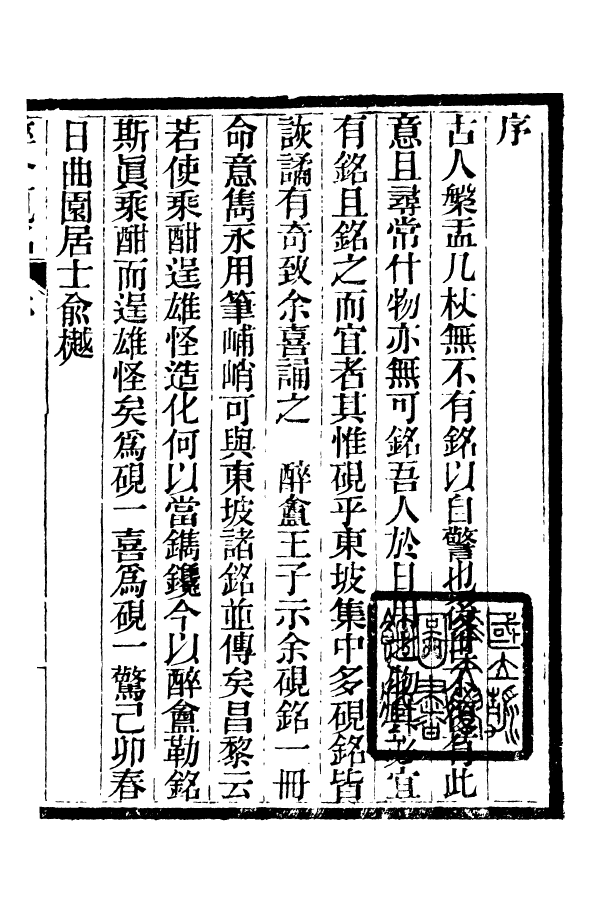 序
古人槃盂几杖無不有銘以自警也後世不復有此
意且尋常什物亦無可銘吾人於日用之物宜
有銘且銘之而宜者其惟硯乎東坡集中多硯銘皆
詼譎有奇致余喜誦之　醉盦王子示余硯銘一冊
命意雋永用筆峭峭可與東坡諸銘並傳矣昌黎云
若使乘酣逞雄怪造化何以當鐫鑱今以醉盦勒銘
斯眞乘酣而逞雄怪矣爲硯一喜爲硯一驚己卯春
日曲園居士俞樾